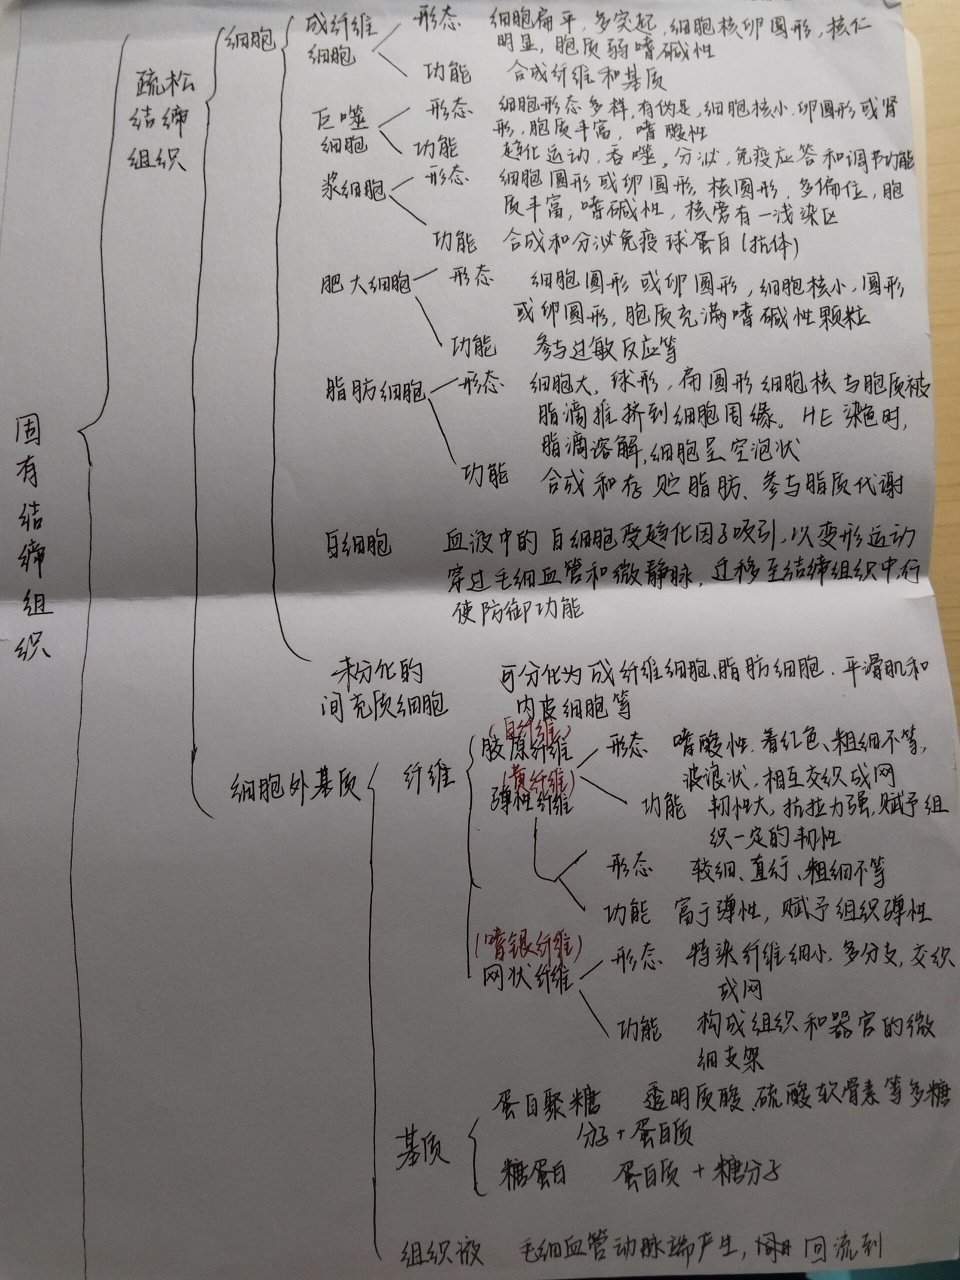 固有结缔组织
疏松
结缔
组织
细胞
成纤维
细胞
形态 细胞扁平,多突起,细胞核卵圆形,核仁
明显,胞质弱嗜碱性
功能 合成纤维和基质
巨噬
细胞
形态 细胞形态多样,有伪足,细胞核小,卵圆形或肾
形,胞质丰富,嗜酸性
功能 趋化运动,吞噬,分泌,免疫应答和调节功能
浆细胞 形态 细胞圆形或卵圆形,核圆形,多偏位,胞
质丰富,嗜碱性,核旁有一浅染区
功能 合成和分泌免疫球蛋白(抗体)
肥大细胞 形态 细胞圆形或卵圆形,细胞核小,圆形
或卵圆形,胞质充满嗜碱性颗粒
功能 参与过敏反应等
脂肪细胞 形态 细胞大、球形,扁圆形细胞核与胞质被
脂滴推挤到细胞周缘。HE染色时,
脂滴溶解,细胞呈空泡状
功能 合成和存贮脂肪、参与脂质代谢
白细胞 血液中的白细胞受趋化因子吸引,以变形运动
穿过毛细血管和微静脉,迁移至结缔组织中,行
使防御功能
未分化的
间充质细胞
可分化为成纤维细胞、脂肪细胞、平滑肌和
内皮细胞等
细胞外基质 纤维
(白纤维)
胶原纤维 形态 嗜酸性.着红色、粗细不等,
波浪状,相互交织成网
功能 韧性大,抗拉力强,赋予组
织一定的韧性
(黄纤维)
弹性纤维
形态 较细、直行、粗细不等
功能 富于弹性,赋予组织弹性
(嗜银纤维)
网状纤维 形态 特染纤维细小,多分支,交织
成网
功能 构成组织和器官的微
细支架
基质
蛋白聚糖 透明质酸、硫酸软骨素等多糖
分子+蛋白质
糖蛋白 蛋白质+糖分子
组织液 毛细血管动脉端产生, 回流到